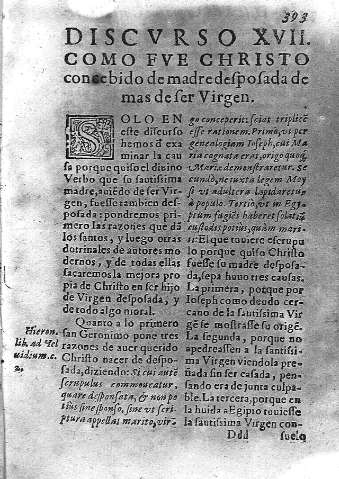 393
DISCVRSO XVII.
COMO FVE CHRISTO
concebido de madre desposada de
mas de ser Virgen.
SOLO EN
este discurso
hemos d̃ exa
minar la cau
sa porque quiso el diuino
Verbo que su santissima
madre, auiẽdo de ser Vir-
gen, fuesse tambien des-
posada: pondremos pri-
mero las razones que dã
los santos, y luego otras
dotrinales de autores mo
dernos, y de todas ellas
sacaremos la mejora pro
pia de Christo en ser hijo
de Virgen desposada, y
de todo algo moral.
Quanto a lo primero
san Geronimo pone tres
razones de auer querido
Christo nacer de despo-
sada, diziendo: Si cui autẽ
scrupulus commoueatur,
quare desponsata, & non po
tiùs sine sponso, siue vt scri-
ptura appellat marito, vir-
Hieron.
lib. ad Hel
uidium. c.
2.
go conceperit: sciat triplicẽ
esse rationem. Primò, vt per
genealogiam Ioseph, cuius Ma
ria cognata erat, origo quoq;
Mariæ demonstraretur. Se
cundò, ne iuxta legem Moy
si vt adultera lapidaretur
à populo. Tertiò, vt in Egi-
ptum fugiẽs haberet solatiũ
custodis potius, quàm mari-
ti: El que tuuiere escrupu
lo porque quiso Christo
fuesse su madre desposa-
da, sepa huuo tres causas.
La primera, porque por
Ioseph como deudo cer-
cano de la santissima Vir
gẽ se mostrasse su origẽ.
La segunda, porque no
apedreassen a la santissi-
ma Virgen viendola pre-
ñada sin ser casada, pen-
sando era de junta culpa-
ble. La tercera, porque en
la huida a Egipto tuuiesse
la santissima Virgen con-
Ddd
suelo